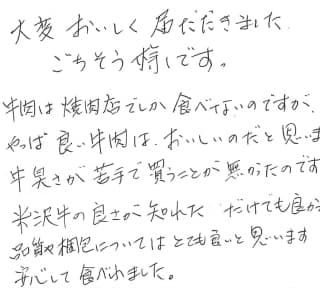 大変 おいしく 届だきました
ごちそう様です。
牛肉は 焼肉店でしか 食べないのですが、
やっぱ 良い牛肉は、おいしいのだと 思いま
牛臭さが 苦手で 買うことが 無かったのです
米沢牛の良さが 知れた だけでも良か
品質や梱包については とても良いと 思います
安心して 食べれました。